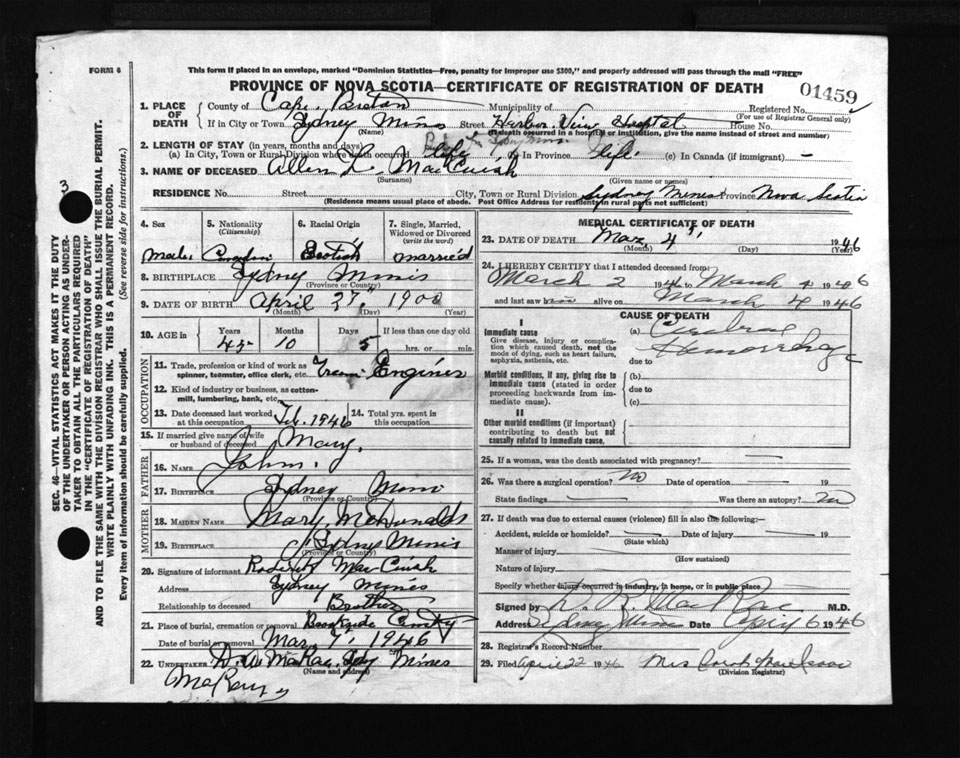 FORM 6
This form if placed in an envelope, marked "Dominion Statistics—Free, penalty for improper use $300," and properly addressed will pass through the mail "FREE"
PROVINCE OF NOVA SCOTIA—CERTIFICATE OF REGISTRATION OF DEATH
01459
1. PLACE OF DEATH
County of Cape Breton Municipality of Registered No.
(For use of Registrar General only)
If in City or Town Sydney Mines Street Harbor View Hospital House No.
(Name) (If death occurred in a hospital or institution, give the name instead of street and number)
2. LENGTH OF STAY (in years, months and days)
(a) In City, Town or Rural Division where death occurred life (b) In Province life (c) In Canada (if immigrant) -
3. NAME OF DECEASED Allen L. MacCuish
(Surname) (Given name or names)
RESIDENCE No. Street City, Town or Rural Division Sydney Mines Province Nova Scotia
(Residence means usual place of abode. Post Office Address for residents in rural parts not sufficient)
4. Sex
5. Nationality
(Citizenship)
6. Racial Origin
7. Single, Married, Widowed or Divorced
(write the word)
Male Canadian Scotish married
8. BIRTHPLACE Sydney Mines
(Province or County)
9. DATE OF BIRTH April 27, 1900
(Month) (Day) (Year)
10. AGE in
Years Months Days If less than one day old
45 10 5 hrs. or min.
OCCUPATION
11. Trade, profession or kind of work as
spinner, teamster, office clerk, etc. Engines
12. Kind of industry or business, as cotton-
mill, lumbering, bank, etc.
13. Date deceased last worked
at this occupation Feb. 1946
14. Total yrs. spent in
this occupation
15. If married give name of wife
or husband of deceased Mary.
FATHER
16. NAME John.
17. BIRTHPLACE Sydney Mines
(Province or County)
MOTHER
18. MAIDEN NAME Mary McDonald
19. BIRTHPLACE Sydney Mines
(Province or County)
20. Signature of informant MacCuish
Address Sydney Mines
Relationship to deceased Brother
21. Place of burial, cremation or removal Brookside
Date of burial or removal Mar 7, 1946
22. UNDERTAKER D. A. MacRae, Syd Mines
(Name and address)
MEDICAL CERTIFICATE OF DEATH
23. DATE OF DEATH Mar 4th 1946
(Month) (Day) (Year)
24. I HEREBY CERTIFY that I attended deceased from:
March 2 1946 to March 4 1946
and last saw him alive on March 4 1946
CAUSE OF DEATH
I
Immediate cause
Give disease, injury or complica-
tion which caused death, not the
mode of dying, such as heart failure,
asphyxia, asthenia, etc.
(a) Cerebral
Hemorrhage
due to
Morbid conditions, if any, giving rise to
immediate cause (stated in order
proceeding backwards from im-
mediate cause).
(b)
due to
(c)
II
Other morbid conditions (if important)
contributing to death but not
causally related to immediate cause.
25. If a woman, was the death associated with pregnancy?
26. Was there a surgical operation? No Date of operation 19
State findings Was there an autopsy? No
27. If death was due to external causes (violence) fill in also the following:—
Accident, suicide or homicide? Date of injury 19
(State which)
Manner of injury
(How sustained)
Nature of injury
Specify whether injury occurred in industry, in home, or in public place
Signed by MacRae M.D.
Address Sydney Mines Date April 6 1946
28. Registrar's Record Number
29. Filed April 22 1946 Mrs
(Division Registrar)
SEC. 46—VITAL STATISTICS ACT MAKES IT THE DUTY
OF THE UNDERTAKER OR PERSON ACTING AS UNDER-
TAKER TO OBTAIN ALL THE PARTICULARS REQUIRED
IN THE "CERTIFICATE OF REGISTRATION OF DEATH"
AND TO FILE THE SAME WITH THE DIVISION REGISTRAR WHO SHALL ISSUE THE BURIAL PERMIT.
WRITE PLAINLY WITH UNFADING INK. THIS IS A PERMANENT RECORD.
Every item of information should be carefully supplied. (See reverse side for instructions.)
3